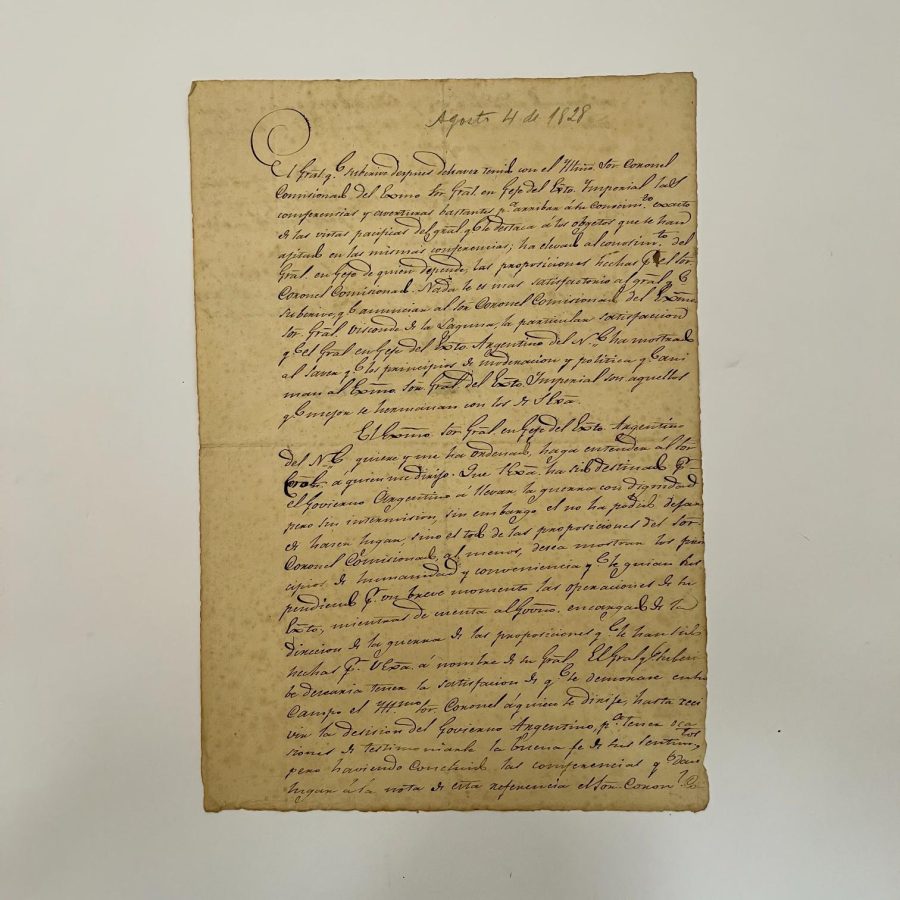 Agosto 4 de 1828
El Gral. q.e subscrive despues de haver tenido con el Illmo. Sor. Coronel
Comisionado del Exmo. Sor. Gral. en Gefe del Exto. Imperial las
conferencias y averturas bastantes p.a arriban á su conocim.to exacto
de las vistas pacificas del gral q.e le destaca á los objetos que se han
ajitado en las mismas conferencias; ha elevado al conosim.to del
Gral. en Gefe de quien depende, las proposiciones hechas p.r el Sor
Coronel Comisionado. Nada le es mas satisfactorio al gral. q.e
subscrive, q.e anunciar al Sor Coronel Comisionado del Exmo
Sor. Gral. Visconde de la Laguna, la particular satisfaccion
q.e el Gral en Gefe del Exto. Argentino del N.e ha mostrado
al saver q.e los principios de moderacion y politica q.e ani
man al Exmo. Sor. Gral. del Exto. Imperial son aquellos
q.e mejor se hermanan con los de S Exa.
El Exmo. Sor Gral. en Gefe del Exto. Argentino
del N.e quiere y me ha ordenado, haga entender al Sor
Corol. á quien me dirijo. Que S Exa. ha sido destinado p.r
el Govierno Argentino á llevar la guerra con dignidad
pero sin intermision, sin embargo el no ha podido dejar
de hacer lugar, sino el todo de las proposiciones del Sor
Coronel Comisionado, al menos, desea mostrar los prin
cipios de humanidad y conveniencia q.e le guian sus
pendiendo p.r un breve momento las operaciones de su
Exto., mientras da cuenta al Govno. encargado de la
direccion de la guerra de las proposiciones q.e le han sido
hechas p.r V Exa. á nombre de su Gral. El Gral q.e subscri
be desearia tener la satisfacion de q.e se demorase en su
Campo el Illmo Sor. Coronel á quien se dirije, hasta reci
vir la desision del Govierno Argentino, p.a tener oca
siones de testimoniarle la buena fe de sus sentim.tos
pero haviendo concluido las conferencias q.e dan
lugar á la nota de esta referencia el Sor. Coron.l Co